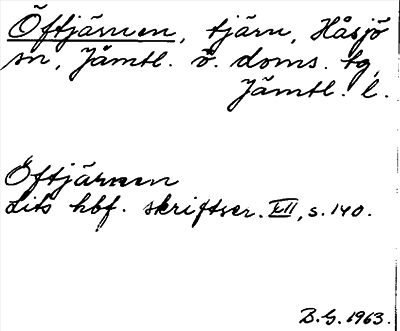 Öftjärnen, tjärn, Håsjö
sn, Jämtl. ö. doms. tg,
Jämtl. l.
Öftjärnen
Lits hbf. skriftser. III, s. 140.
B.G. 1963.